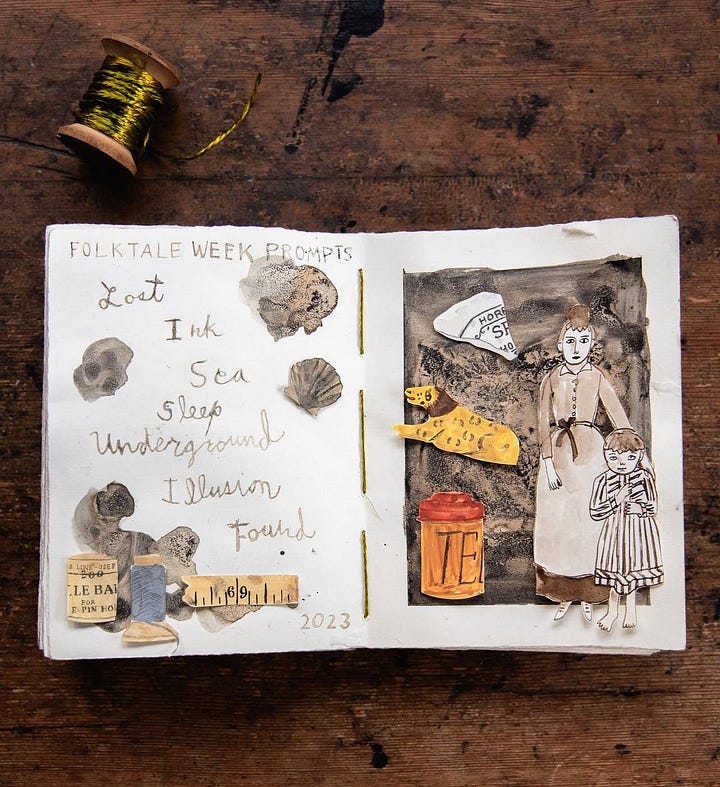 FOLKTALE WEEK PROMPTS
Lost
Ink
Sea
Sleep
Underground
Illusion
Found
200
LE BA
FOR
PIN HO
69
2023
HOR
'SP
TE